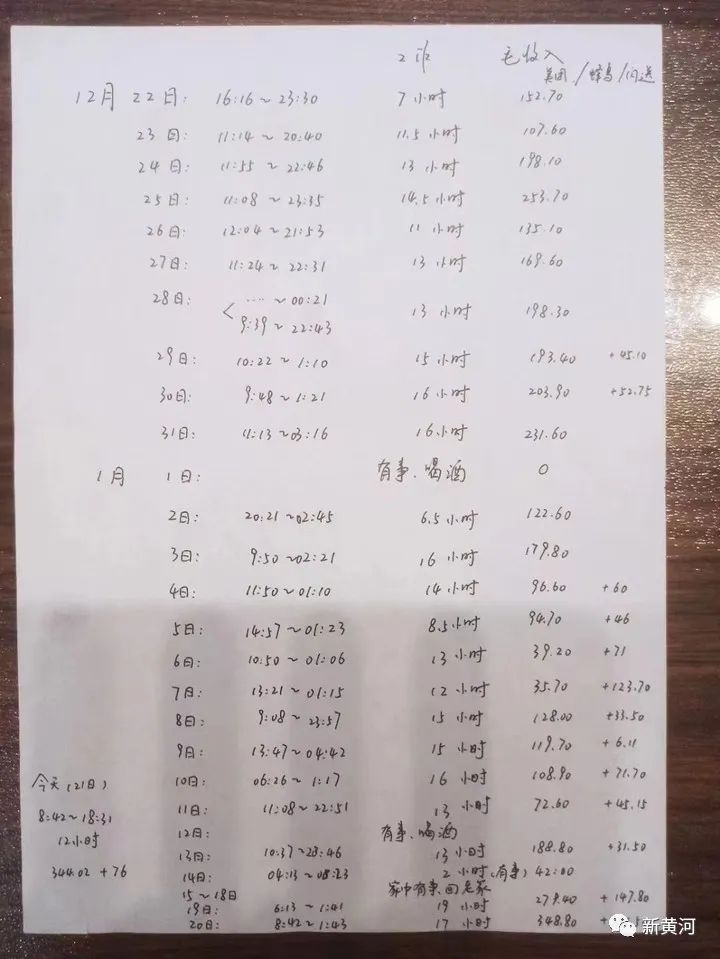 工作 毛收入
美团/蜂鸟/闪送
12月 22日: 16:16~23:30 7小时 152.70
23日: 11:14~20:40 11.5小时 107.60
24日: 11:55~22:46 13小时 198.10
25日: 11:08~23:35 14.5小时 253.70
26日: 12:04~21:53 11小时 135.10
27日: 11:24~22:31 13小时 169.60
28日: <····~00:21
9:39~22:43 13小时 198.30
29日: 10:22~1:10 15小时 193.40 +45.10
30日: 9:48~1:21 16小时 203.90 +52.75
31日: 11:13~03:16 16小时 231.60
1月 1日: 有事、喝酒 0
2日: 20:21~02:45 6.5小时 122.60
3日: 9:50~02:21 16小时 179.80
4日: 11:50~01:10 14小时 96.60 +60
5日: 14:57~01:23 8.5小时 94.70 +46
6日: 10:50~01:06 13小时 39.20 +71
7日: 13:21~01:15 12小时 35.70 +123.70
8日: 9:08~23:57 15小时 128.00 +33.50
9日: 13:47~04:42 15小时 119.70 +6.11
10日: 06:26~1:17 16小时 108.90 +71.70
11日: 11:08~22:51 13小时 72.60 +45.15
12日: 有事、喝酒
13日: 10:37~23:46 13小时 188.80 +31.50
14日: 04:13~08:23 2小时(有事) 42.00
15~18日 家中有事、回老家
19日: 6:13~1:41 19小时 279.40 +147.80
20日: 8:42~1:43 17小时 348.80
今天(21日)
8:42~18:31
12小时
344.02+76
新黄河